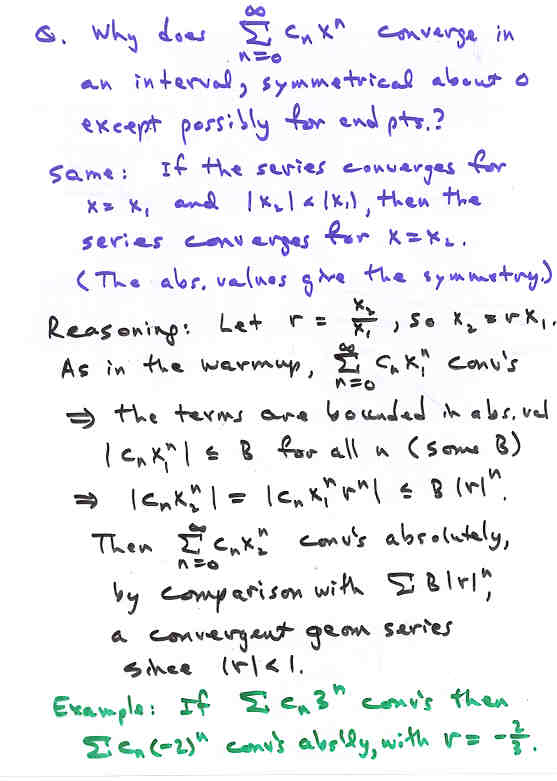 Q. Why does ∞∑n=0 cₙxⁿ converge in
an interval, symmetrical about 0
except possibly for end pts.?
Same: If the series converges for
x = x₁ and |x₂| < |x₁|, then the
series converges for x = x₂.
(The abs. values give the symmetry.)
Reasoning: Let r = x₂/x₁, so x₂ = rx₁.
As in the warmup, ∞∑n=0 cₙx₁ⁿ conv's
⇒ the terms are bounded in abs. val
|cₙx₁ⁿ| ≤ B for all n (some B)
⇒ |cₙx₂ⁿ| = |cₙx₁ⁿrⁿ| ≤ B|r|ⁿ.
Then ∞∑n=0 cₙx₂ⁿ conv's absolutely,
by comparison with ∑B|r|ⁿ,
a convergent geom series
since |r|<1.
Example: If ∑cₙ3ⁿ conv's then
∑cₙ(-2)ⁿ conv's abs'lly, with r = -2/3.